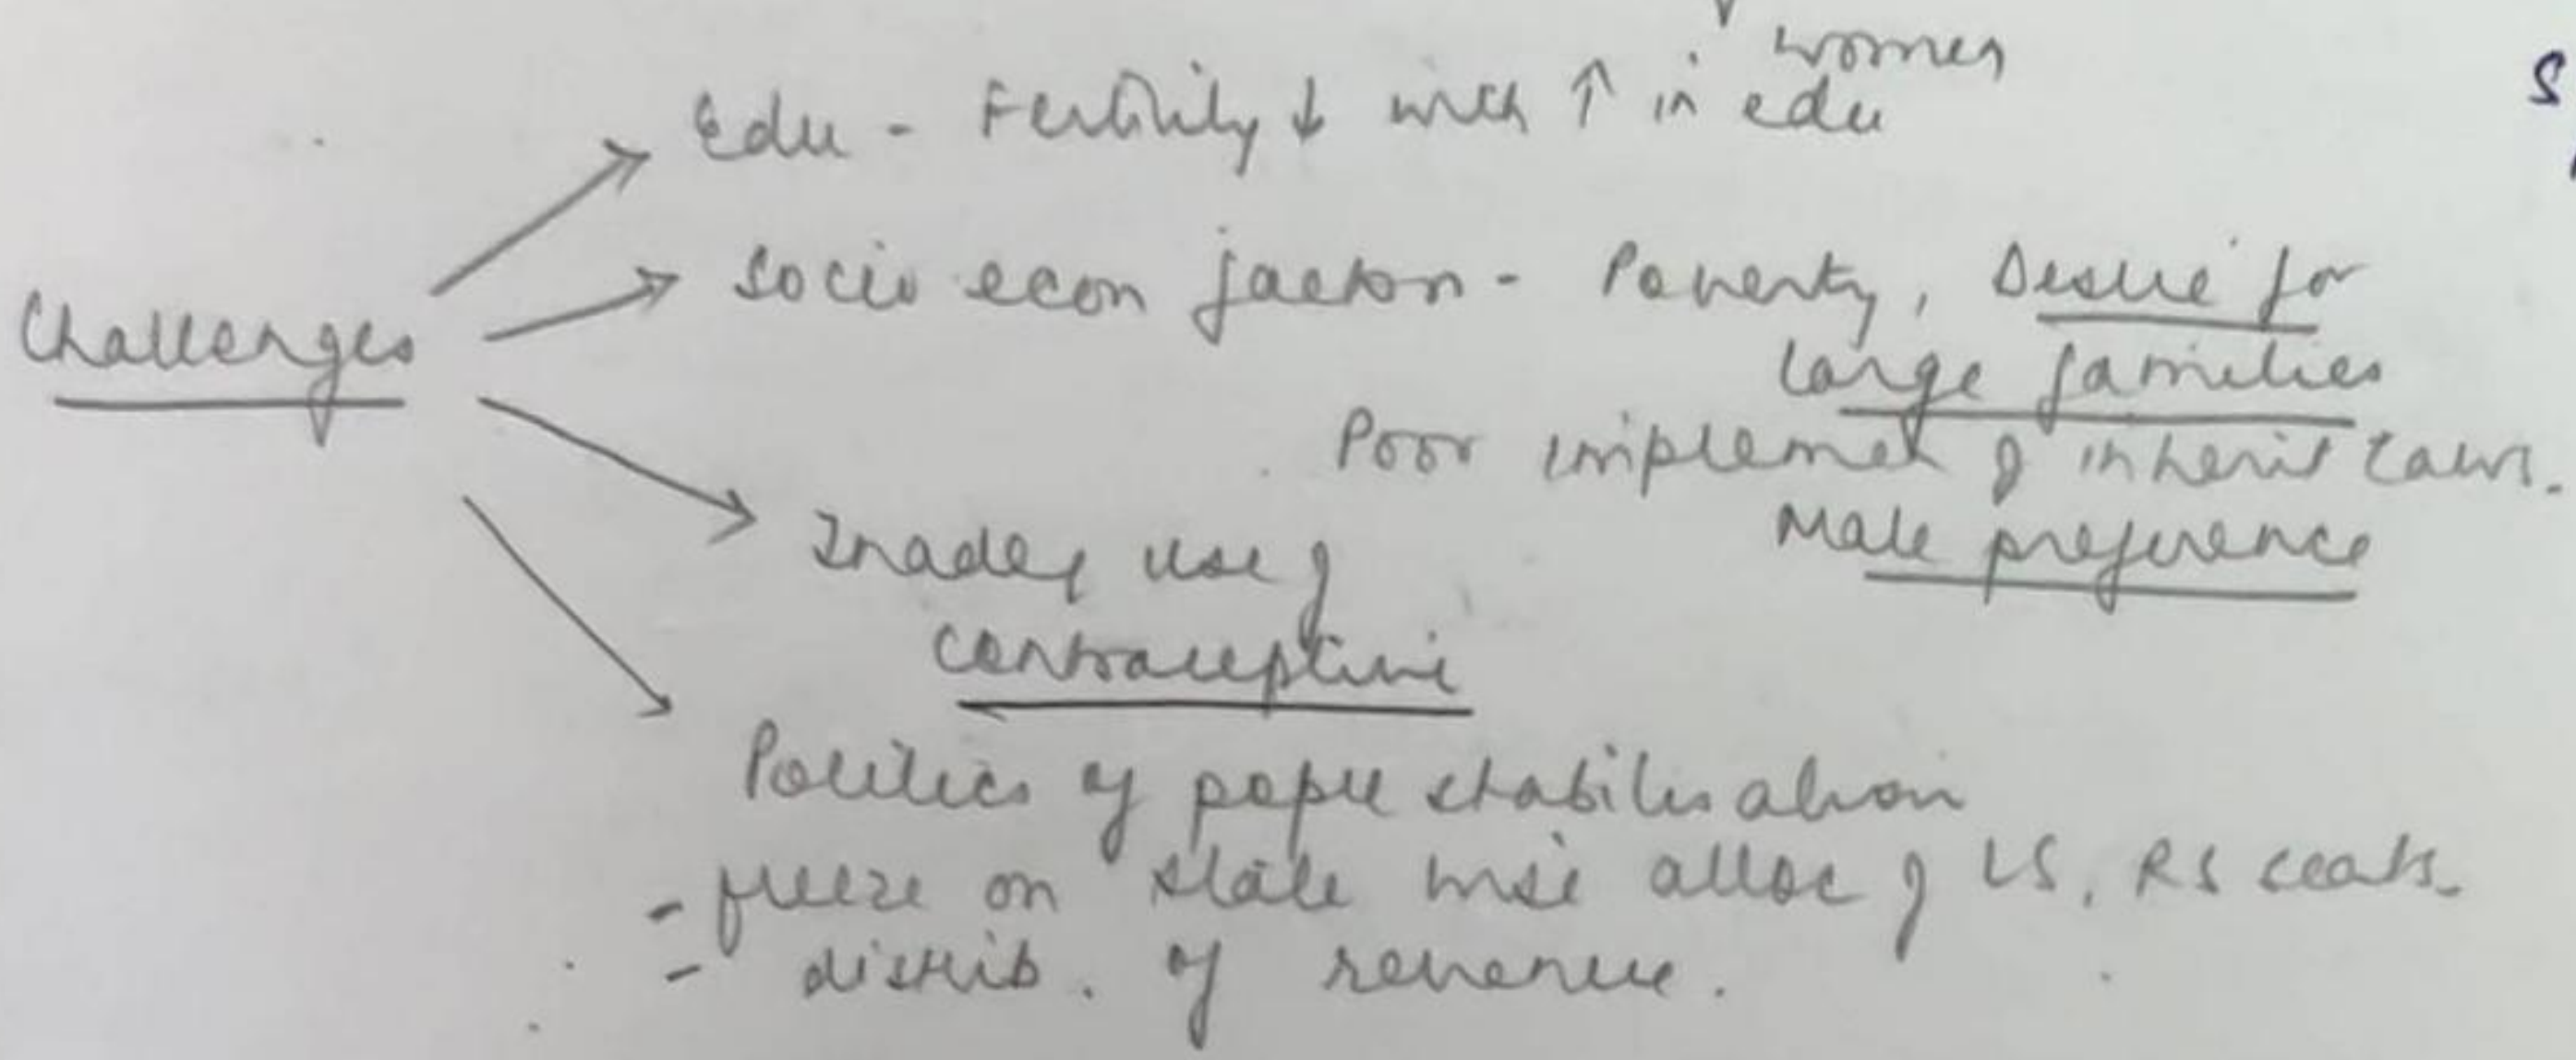 women
Edu - Fertility ↓ with ↑ in edu
Socio econ factors - Poverty, Desire for
large families
Challenges
Poor implement of inherit laws.
Male preference
Inadeq use of
contraceptive
Politics of popu stabilisation
- freeze on state wise alloc of LS, RS seats.
- distrib. of revenue.